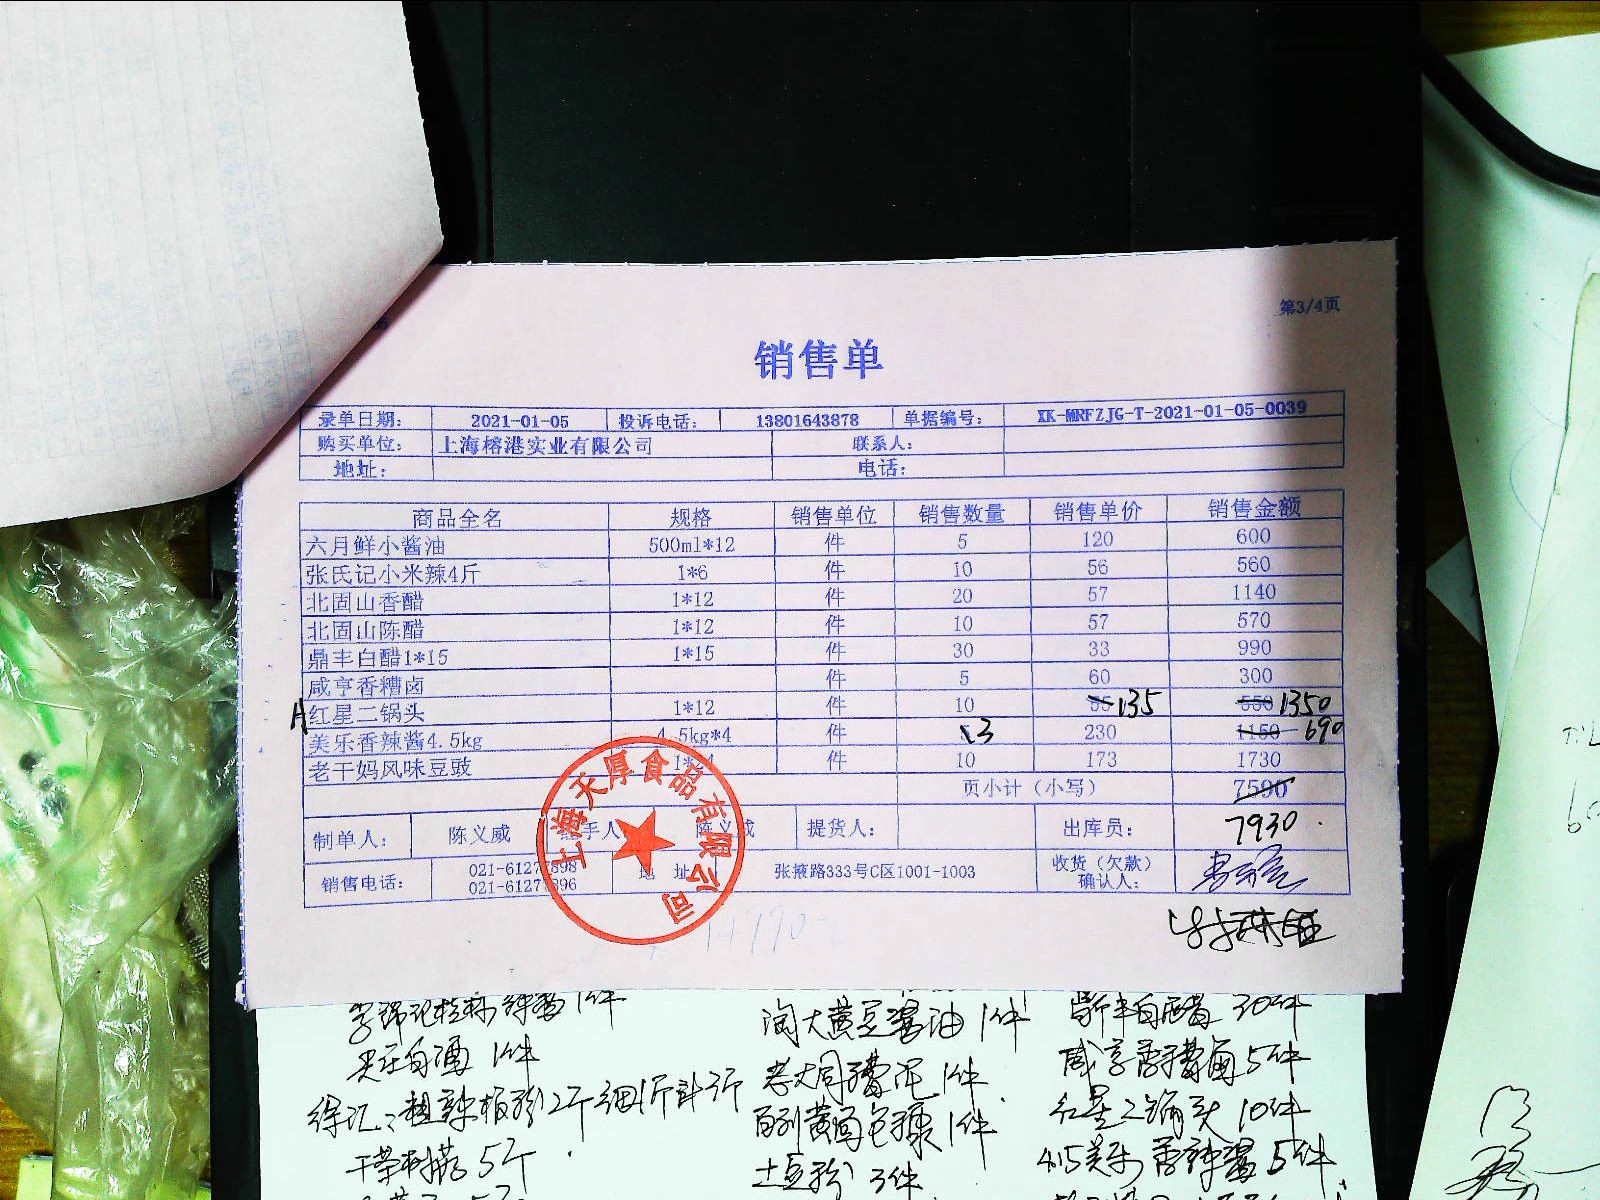 第3/4页
销售单
录单日期: 2021-01-05 投诉电话: 13801643878 单据编号: XK-MRFZJG-T-2021-01-05-0039
购买单位: 上海榕港实业有限公司 联系人:
地址: 电话:
商品全名 规格 销售单位 销售数量 销售单价 销售金额
六月鲜小酱油 500ml*12 件 5 120 600
张氏记小米辣4斤 1*6 件 10 56 560
北固山香醋 1*12 件 20 57 1140
北固山陈醋 1*12 件 10 57 570
鼎丰白醋1*15 1*15 件 30 33 990
咸亨香糟卤 件 5 60 300
A红星二锅头 1*12 件 10 55 135 550 1350
美乐香辣酱4.5kg 4.5kg*4 件 3 230 1150 690
老干妈风味豆豉 件 10 173 1730
页小计（小写） 7590
7930
制单人: 陈义威 经手人 陈义威 提货人: 出库员:
销售电话: 021-61277898 地址 张掖路333号C区1001-1003 收货（欠款）
021-61277896 确认人:
上海天厚食品有限公司
淘大黄豆酱油 1件
鼎丰白醋 30件
咸亨香糟卤 5件
红星二锅头 10件
土豆粉 3件